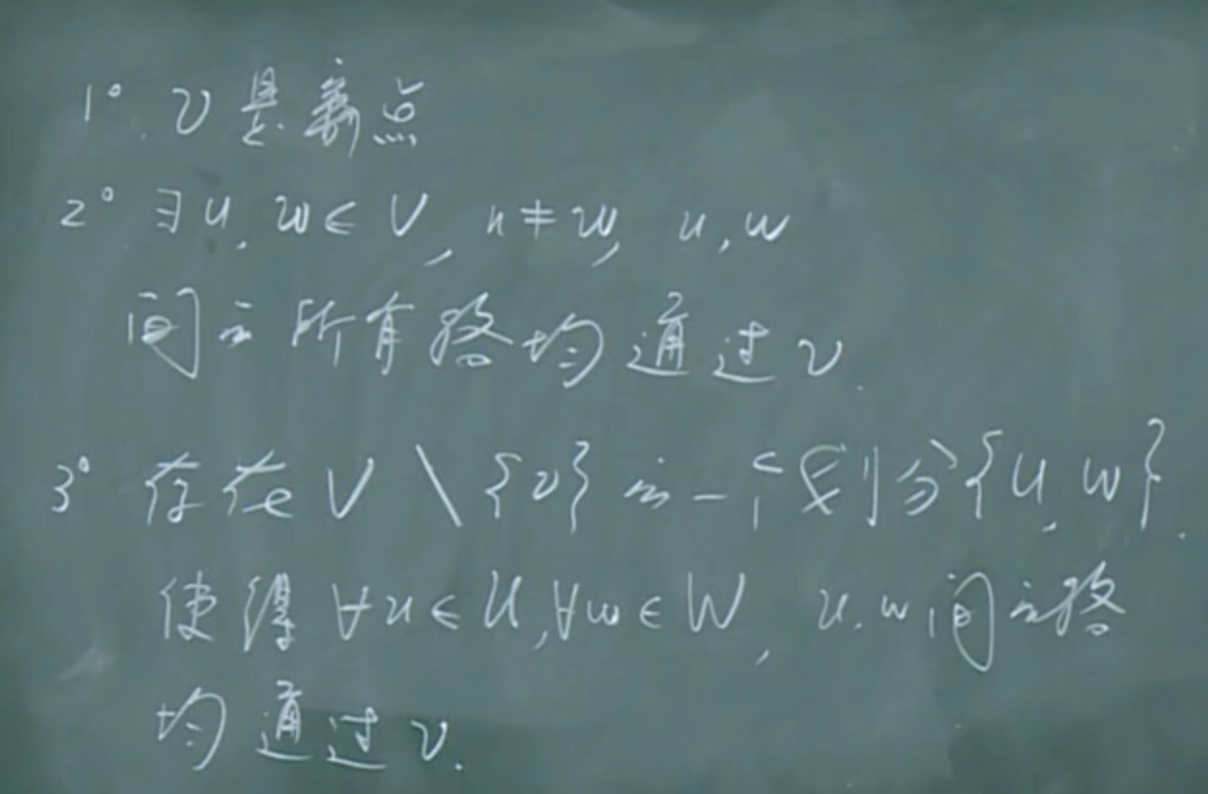 1° v是割点
2° ∃u, w∈V, u≠w, u, w
间的所有路均通过v.
3° 存在V\{v}的一个划分{U, W}.
使得∀u∈U, ∀w∈W, u, w间的路
均通过v.